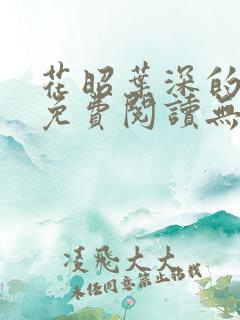 花昭葉深的
免費閱讀無
凌飛大大
未经同意禁止转载